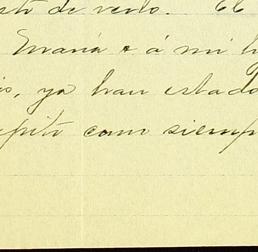 de verlo. 66
María e á mi h
s, ya han estado
epito como siemp